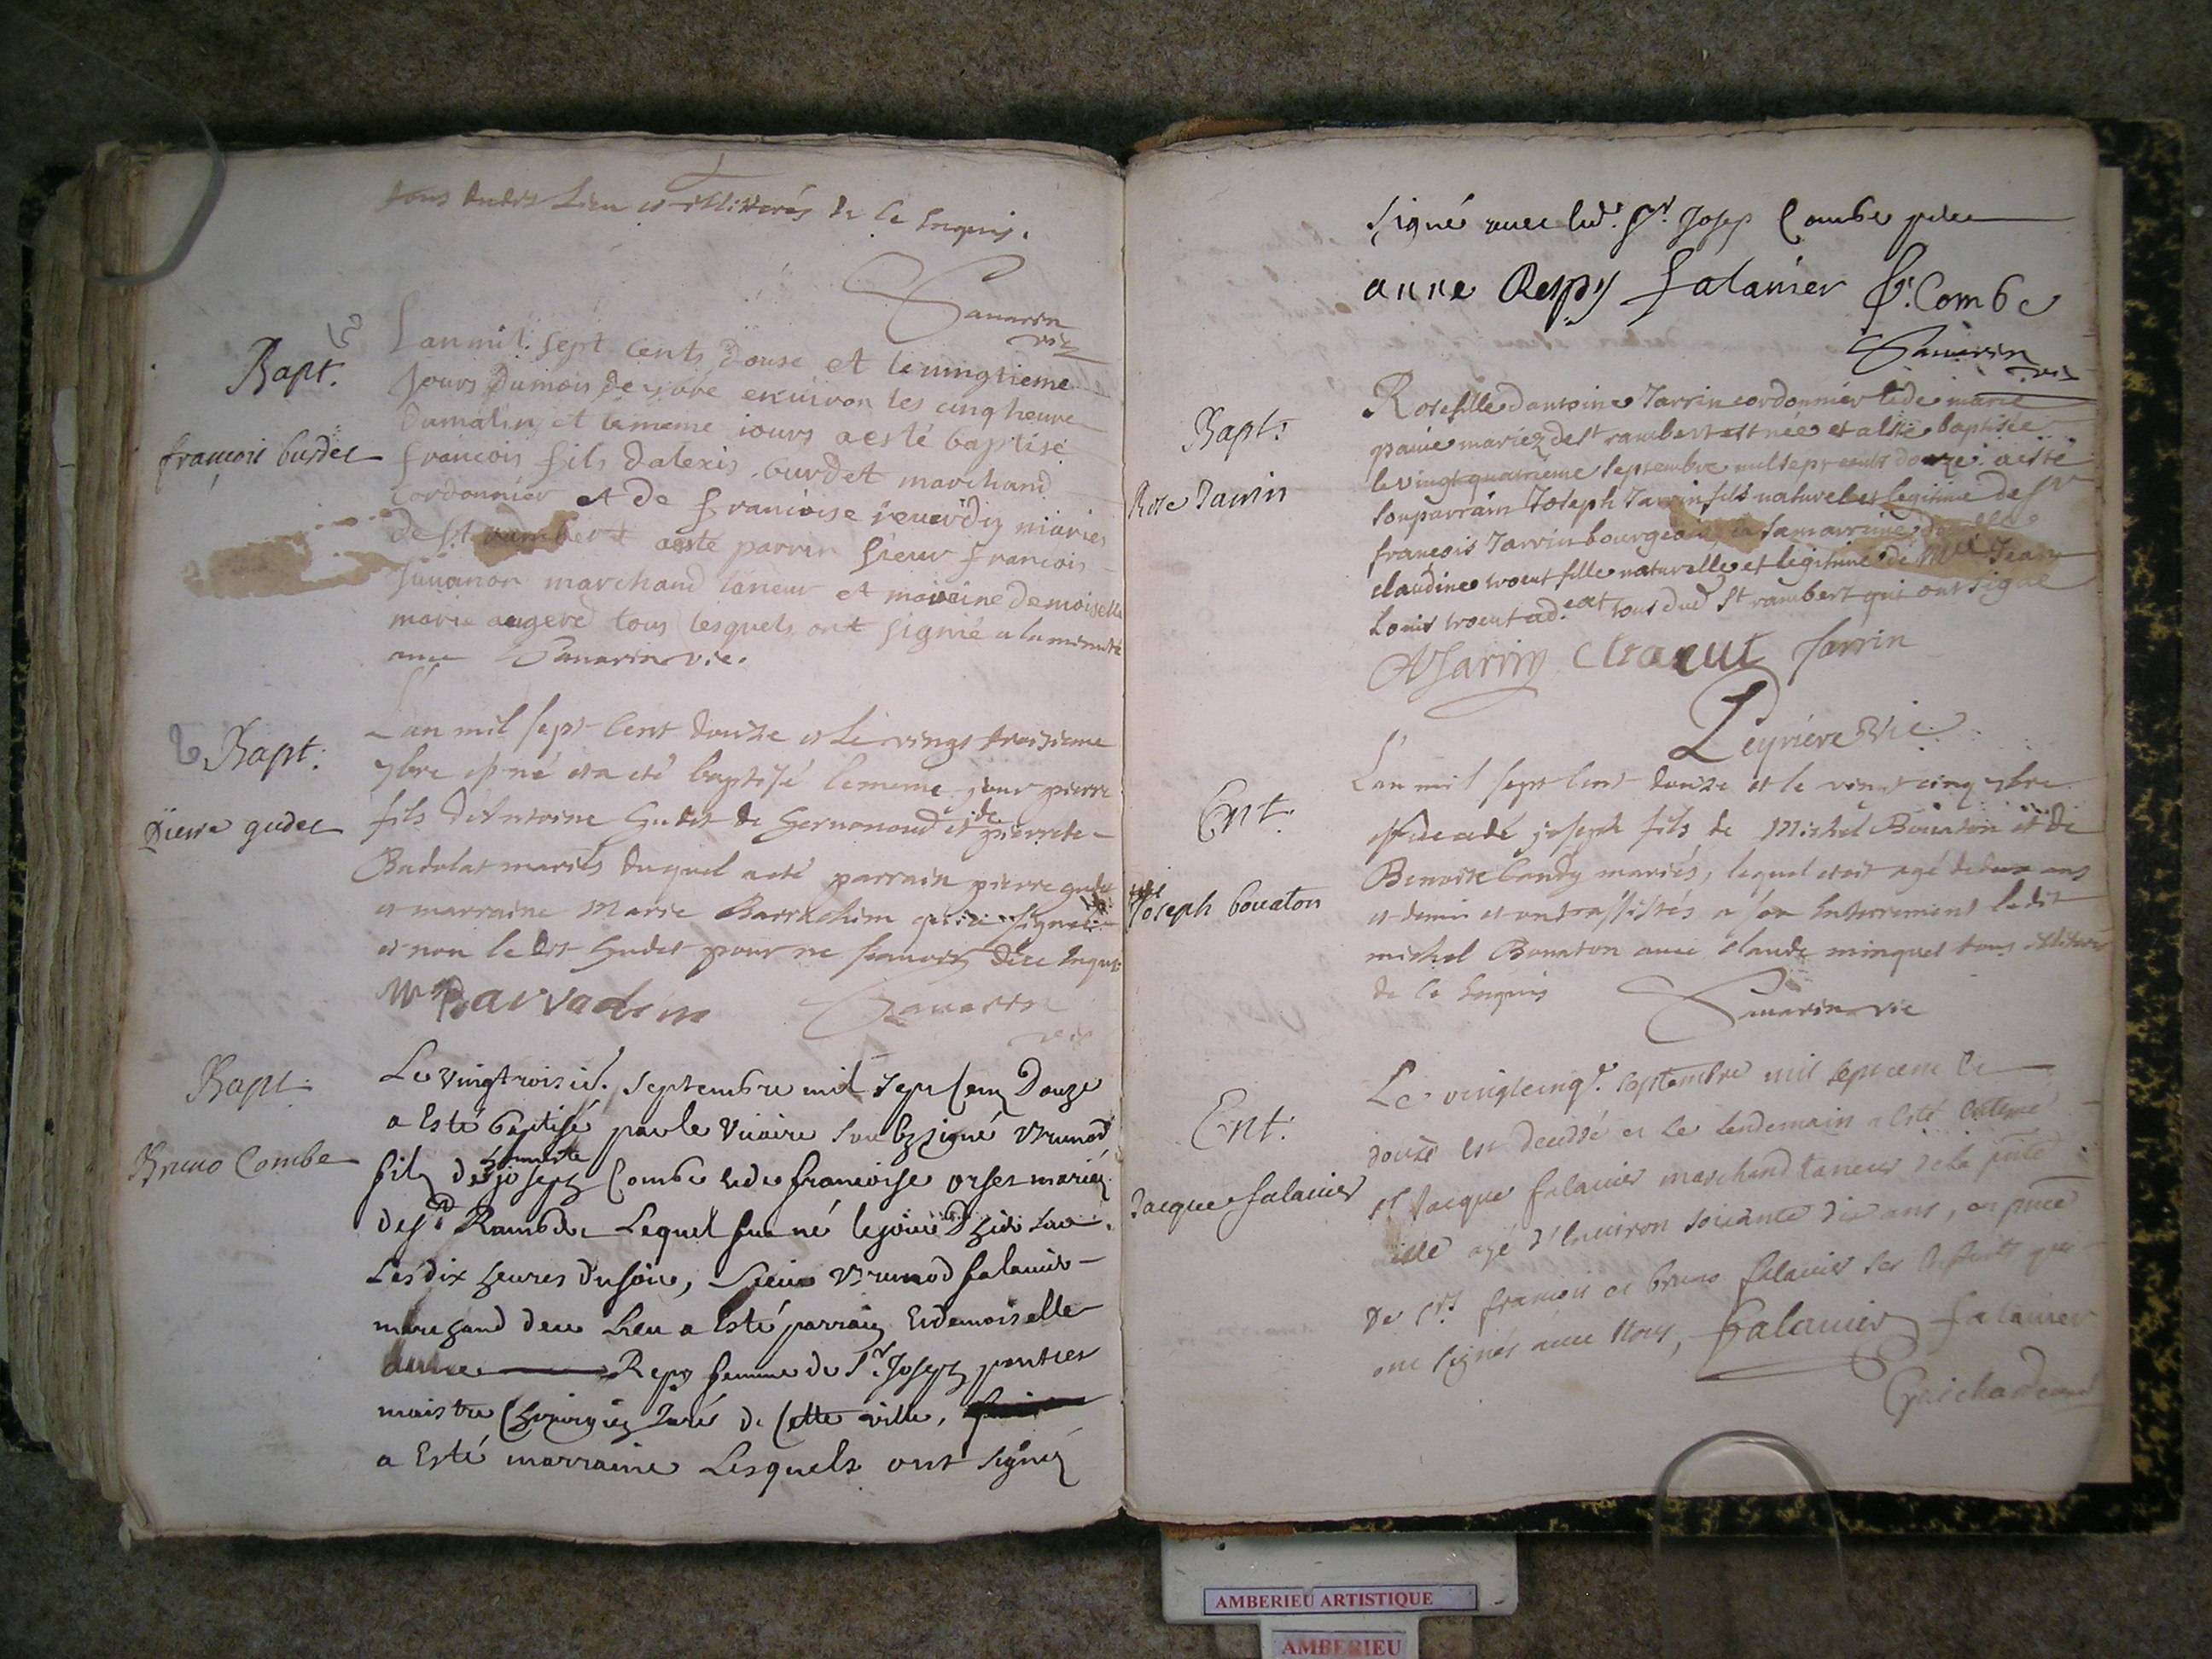 tous dudit Lieu et illitterés de ce Enquis.
Savarin
vic
Bapt.
françois burdet
Lan mil sept cents douse et le vingtieme
jours du mois de 7bre enuiron les cinq heure
du matin et le meme iours a esté baptisé
francois fils dalexis burdet marchand
cordonnier et de francoise reuerdiz mariés
de st rambert a este parrin sieur francois
marchand taneur et maraine demoiselle
marie augerd tous lesquels ont signié a la minute
auec Sauarin vic.
Bapt.
Pierre gudet
L'an mil sept cent douze et le vingt troisieme
7bre est né et a eté baptisé le meme jour pierre
fils d'Antoine Gudet de Gernonoud et de pierrete
Badolat mariés duquel a eté parrain pierre gudet
et marraine Marie Barradim qui a signé
et non le dit Gudet pour ne scauoir de ce enquis
Mie Barradim Sauarin
vic
Bapt
Bruno Combe
Le vingtroisie. septembre mil sept cens Douze
a Esté baptisé par le vicaire soubzsigné Brunod
fils de honneste joseph Combe et de francoise orset mariéz
de st Rambert Lequel fut né le jour d'hier sur
Les dix heures du soir, sieur Brunod falauier
marchand de ce Lieu a Esté parrain Et demoiselle
anne Repy femme de Sr. Joseph pontier
maistre Chirurgien Juré de Cette ville,
a Esté marraine Lesquels ont signéz
signé auec led. sr. Josep Combe pere
anne Respy falauier J. Combe
Sauarin
vic
Bapt.
Rose Jarrin
Rose fille dantoine Jarrin cordonnier et de marie
pauie mariez de st rambert est née et a esté baptisée
le vingt quatrieme septembre mil sept cents douze. a esté
son parrain Joseph Jarrin fils naturel et legitime de sr
françois Jarrin bourgeois, et sa marraine delle
claudine trocut fille naturelle et legitime de Me Jean
Louis trocut ad.cat tous dud st rambert qui ont signé
AJarrin C trocut Jarrin
Leyriere Vic.
Ent.
Joseph bouaton
L'an mil sept cent douze et le vingt cinq 7bre
est decedé joseph fils de Michel Bouaton et de
Benoite Candy mariés, lequel etoit agé de deux ans
et demi et ont assistés a son Enterrement ledit
michel Bouaton auec claude minguet tous illiterés
de ce Enquis Sauarin vic
Ent.
Jacque falauier
Le vingtcinqe. septembre mil sept cent
douze est decedé et le lendemain a esté enterré
sr Jacque falauier marchand taneur de la pnte
uille agé d'enuiron soixante dix ans, en pnce
de srs francois et bruno falauier ses enfants qui
ont signés auec Nous, falauier falauier
Guichard curé
AMBERIEU ARTISTIQUE
AMBERIEU